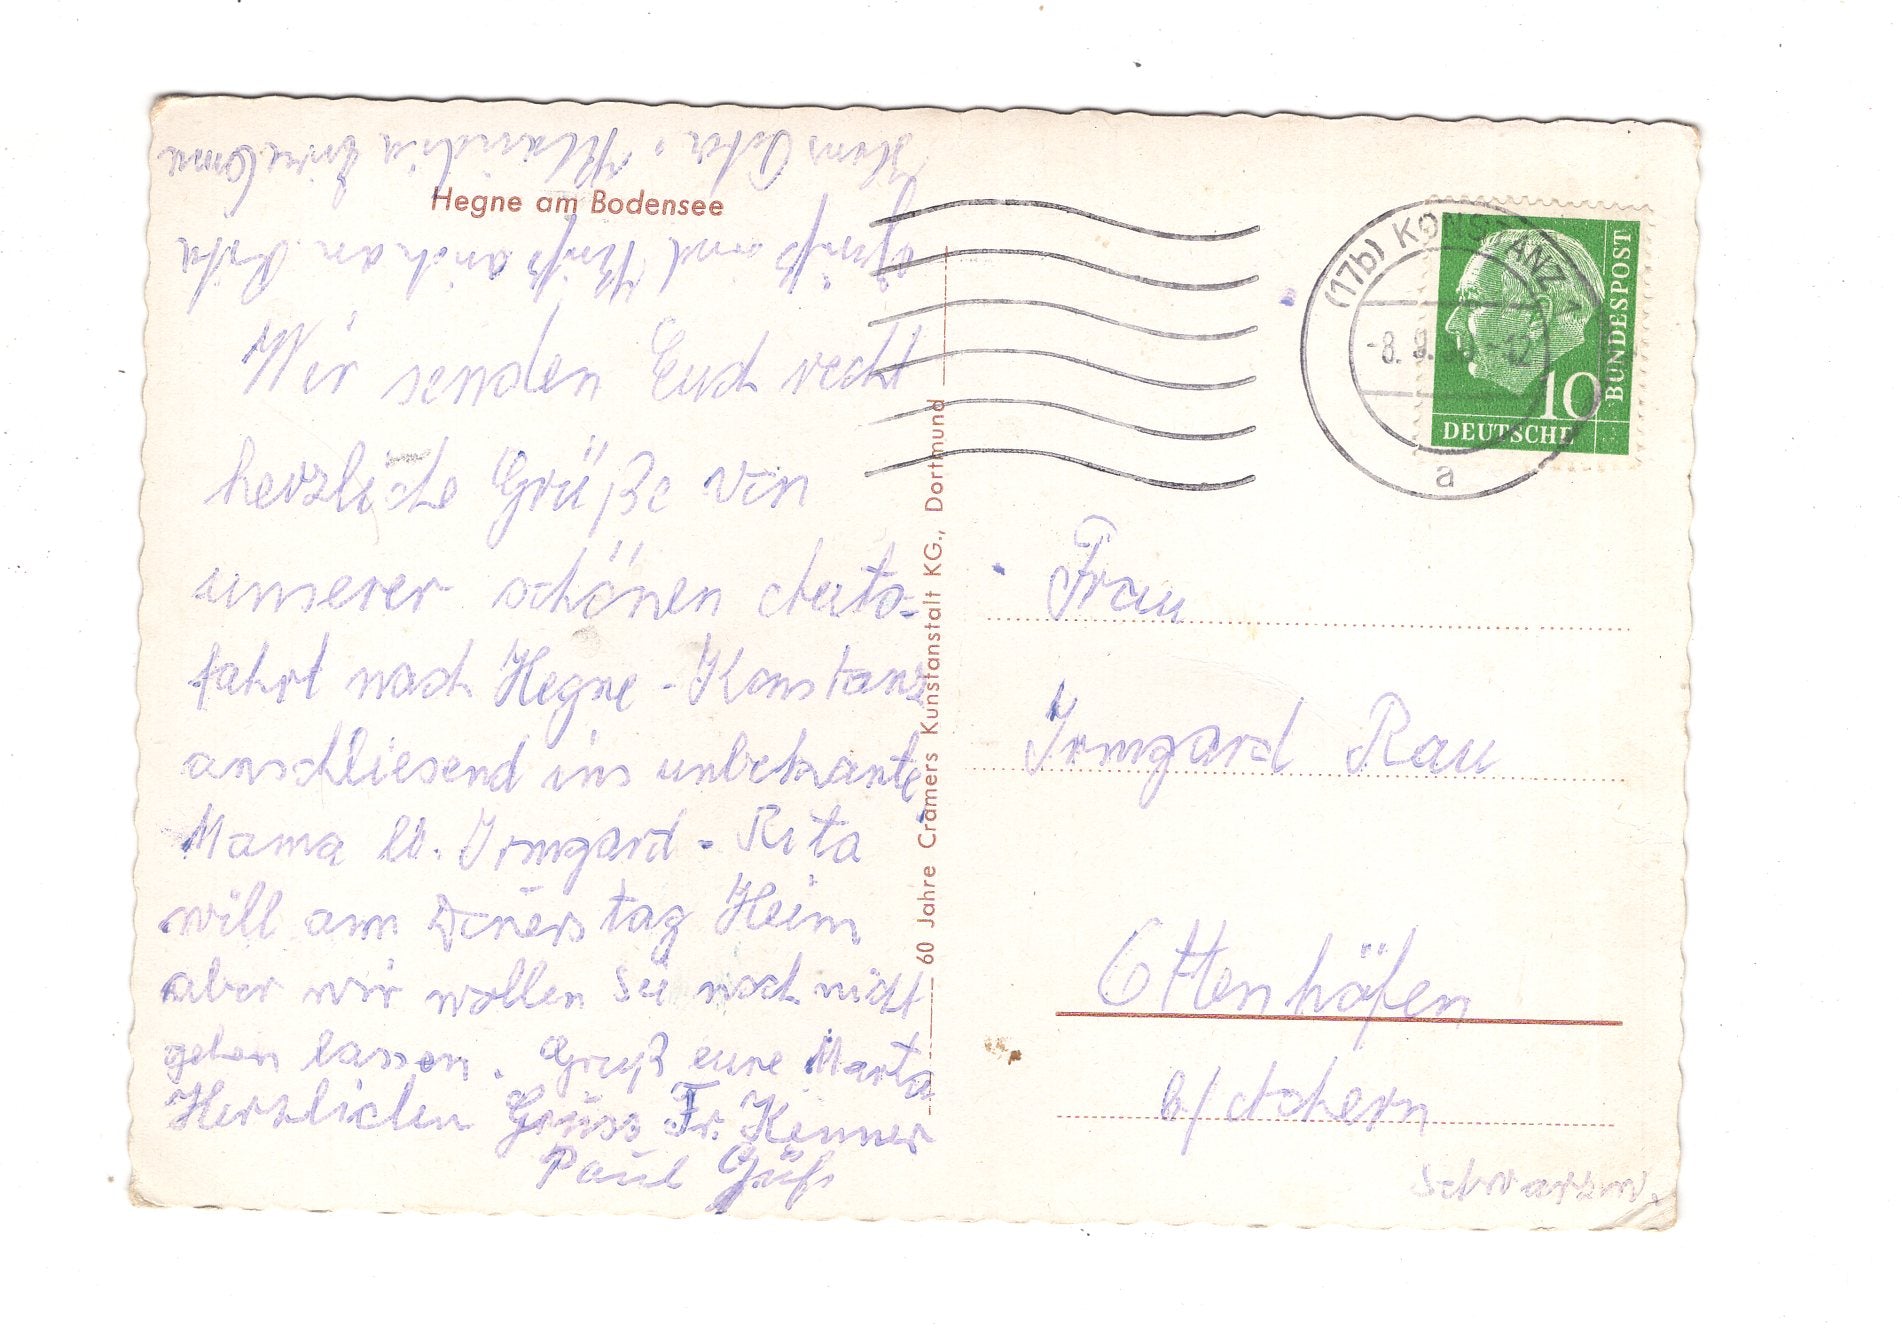 Hegne am Bodensee
Gruß und Kuß auch an Rita
Wir senden Euch recht
herzliche Grüße von
unserer schönen Auto-
fahrt nach Hegne - Konstanz
anschliesend ins unbekante
Mama lb. Irmgard - Rita
will am Donerstag Heim
aber wir wollen Sie noch nicht
gehen lassen. Gruß eure Marta
Herzlichen Gruss Fr. Kenner
Paul
60 Jahre Cramers Kunstanstalt KG., Dortmund
(17b) KONSTANZ 1
-8. 9. -12
a
10
DEUTSCHE
BUNDESPOST
Frau
Irmgard Rau
Ottenhöfen
b/ Achern
Schwarzw.